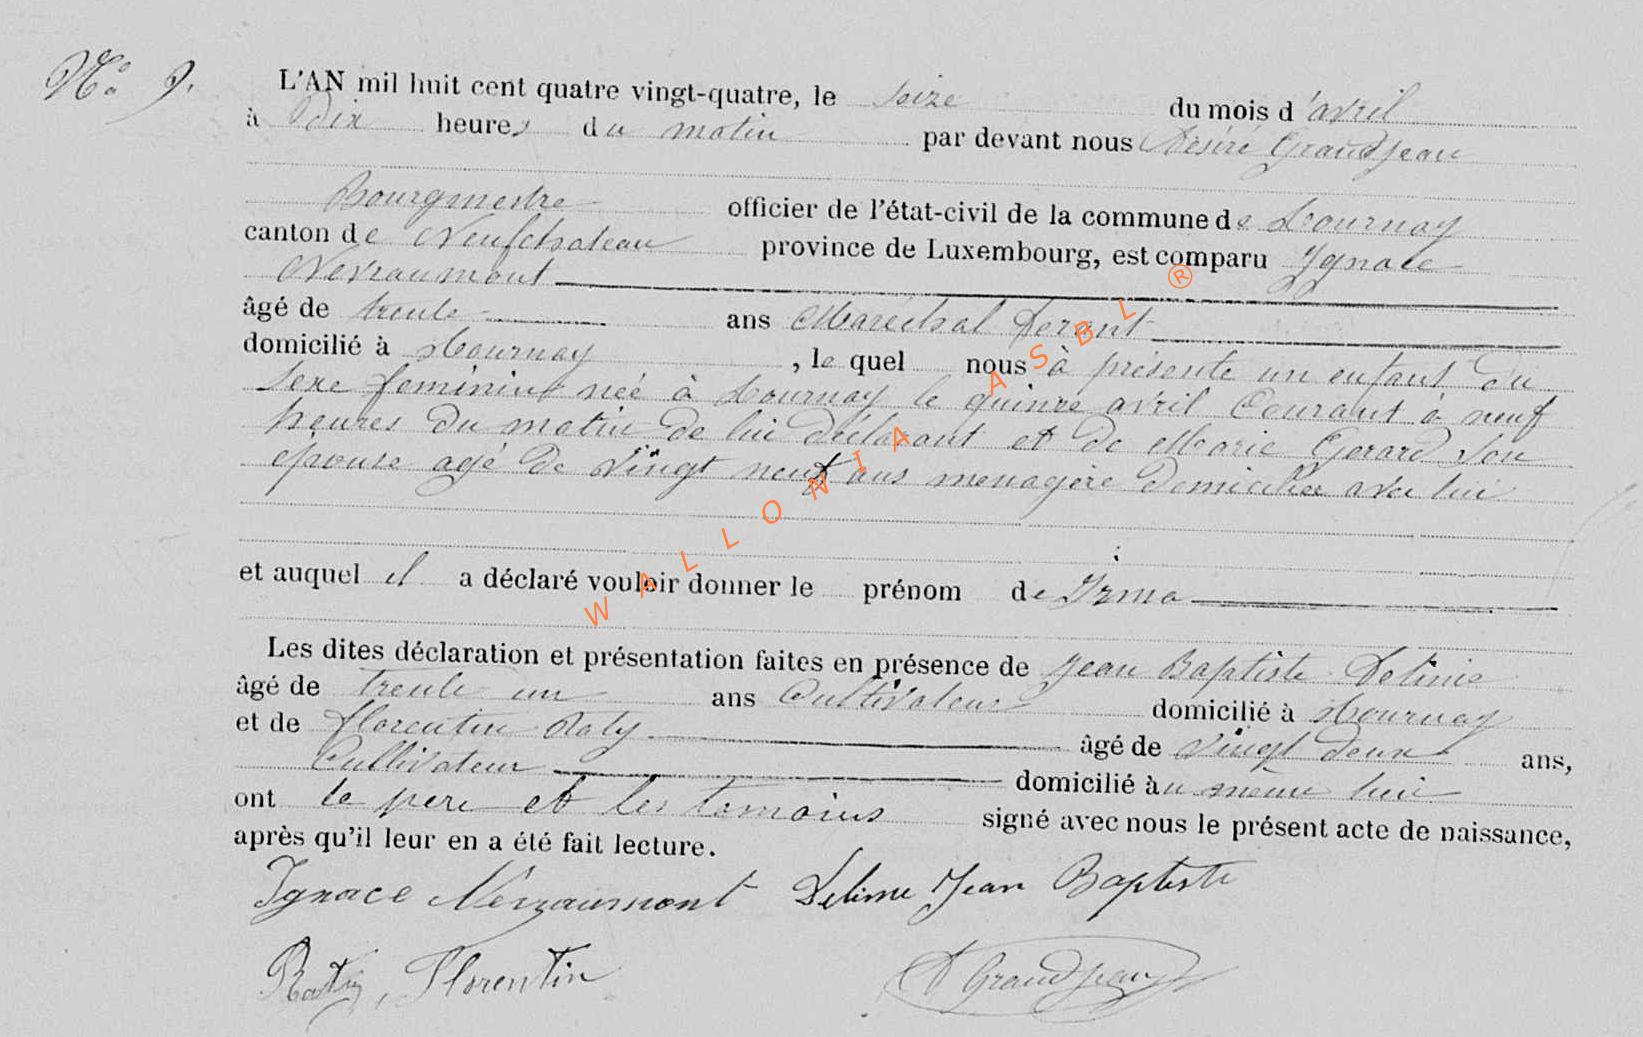 No 9.
L'AN mil huit cent quatre vingt-quatre, le seize du mois d'avril
à Dix heures du matin par devant nous Désiré Grandjean
Bourgmestre officier de l'état-civil de la commune de Tournay
canton de Neufchateau province de Luxembourg, est comparu Ignace
Nevraumont
âgé de trente ans Maréchal ferant
domicilié à Tournay, le quel nous à présente un enfant du
sexe feminine née à Tournay le quinze avril Courant à neuf
heures du matin de lui déclarant et de Marie Gerard son
épouse agé de vingt neuf ans menagère domiciliée avec lui
et auquel il a déclaré vouloir donner le prénom de Irma
Les dites déclaration et présentation faites en présence de Jean Baptiste
âgé de trente un ans Cultivateur domicilié à Tournay
et de florentin Raty âgé de vingt deux ans,
Cultivateur domicilié au même lieu
ont le pere et les temoins signé avec nous le présent acte de naissance,
après qu'il leur en a été fait lecture.
Ignace Névraumont Jean Baptiste
Raty, Florentin D Grandjean
WALLONIA ASBL ®